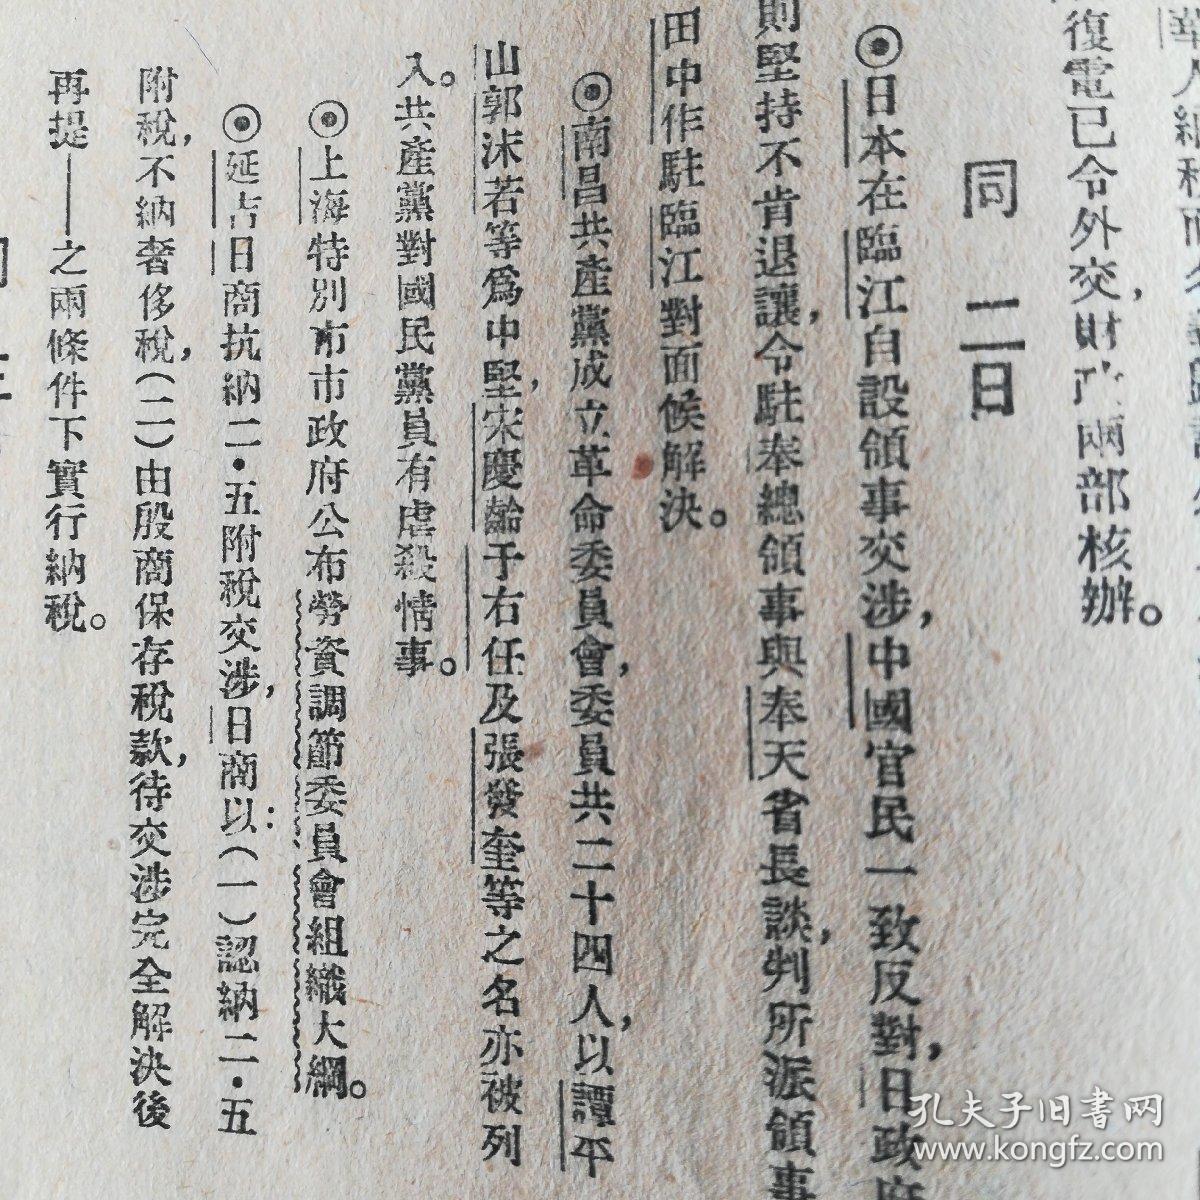 復電已令外交,財政兩部核辦。
同 二日
◉日本在臨江自設領事交涉,中國官民一致反對,日政府
則堅持不肯退讓,令駐奉總領事與奉天省長談判,所派領事
田中作駐臨江對面候解決。
◉南昌共產黨成立革命委員會,委員共二十四人,以譚平
山郭沫若等爲中堅,宋慶齡于右任及張發奎等之名亦被列
入。共產黨對國民黨員有虐殺情事。
◉上海特別市市政府公布勞資調節委員會組織大綱。
◉延吉日商抗納二·五附稅交涉,日商以:(一)認納二·五
附稅,不納奢侈稅,(二)由殷商保存稅款,待交涉完全解決後
再提——之兩條件下實行納稅。
孔夫子旧書网
www.kongfz.com